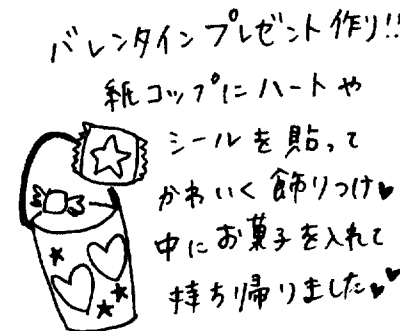 バレンタインプレゼント作り!!
紙コップにハートや
シールを貼って
かわいく飾りつけ♥
中にお菓子を入れて
持ち帰りました♥♥